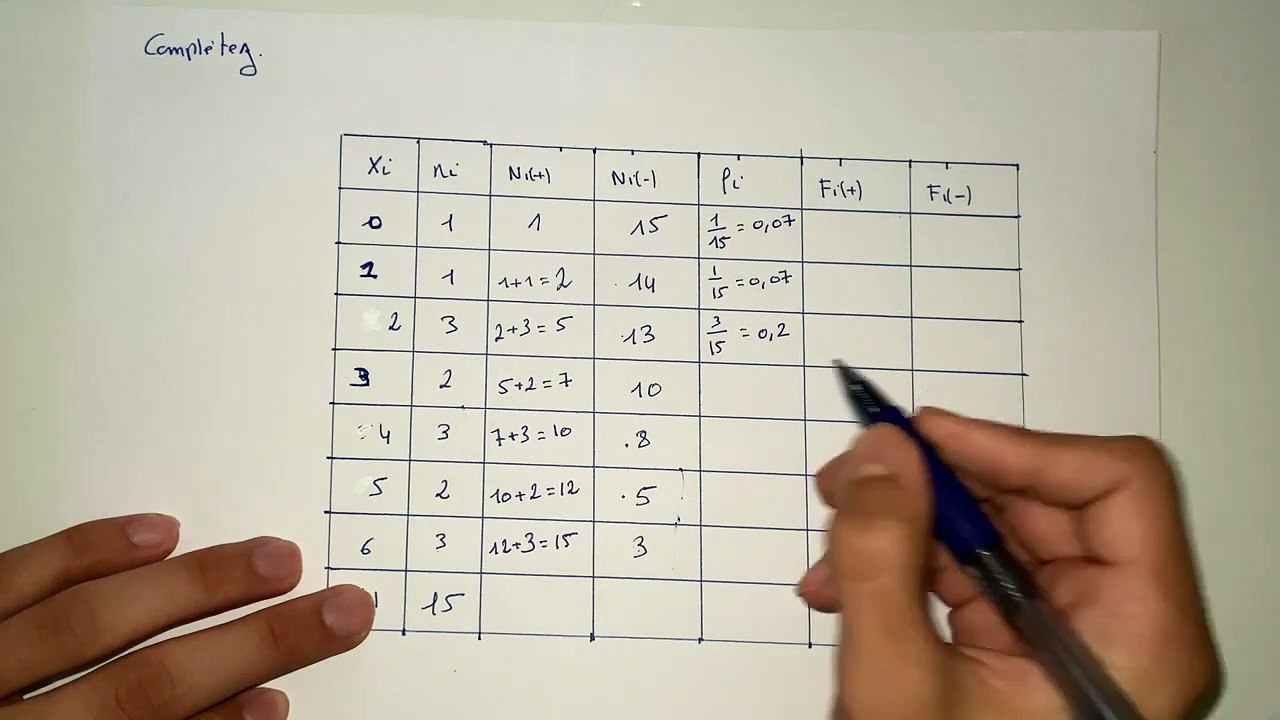 Complétez.
Xi ni Ni(+) Ni(-) fi Fi(+) Fi(-)
0 1 1 15 1/15 = 0,07
1 1 1+1=2 14 1/15 = 0,07
2 3 2+3=5 13 3/15 = 0,2
3 2 5+2=7 10
4 3 7+3=10 8
5 2 10+2=12 5
6 3 12+3=15 3
15